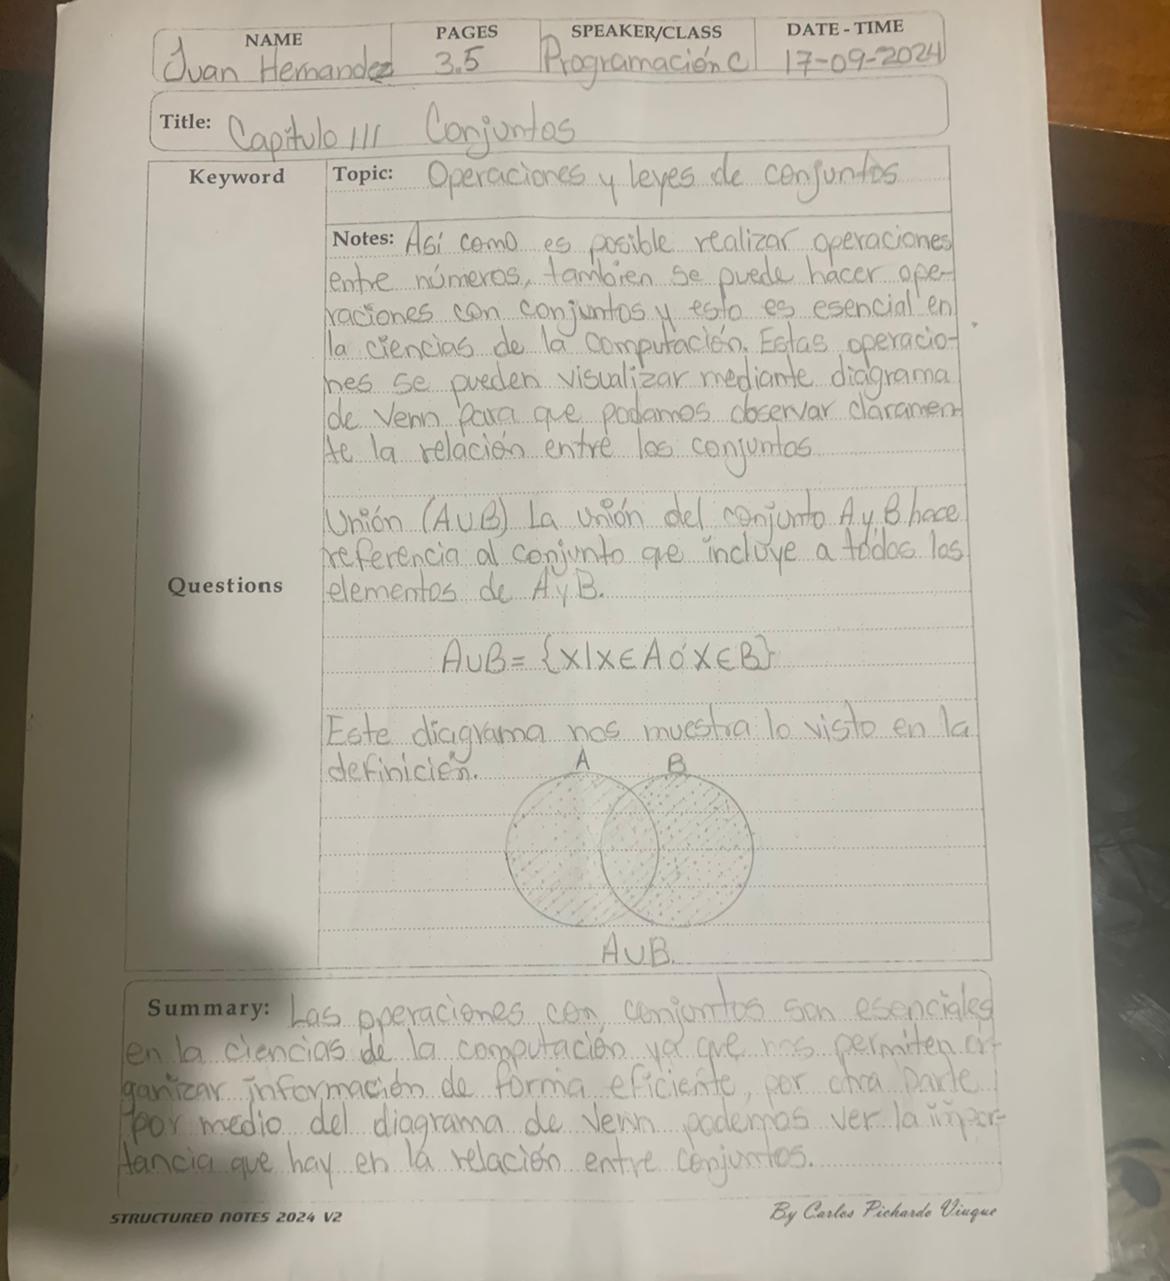 NAME PAGES SPEAKER/CLASS DATE - TIME
Juan Hernandez 3.5 Programación C 17-09-2024
Title: Capitulo III Conjuntos
Keyword
Topic: Operaciones y leyes de conjuntos
Notes: Así como es posible realizar operaciones
entre números, tambien se puede hacer ope-
raciones con conjuntos y esto es esencial en
la ciencias de la computación. Estas operacio-
nes se pueden visualizar mediante diagrama
de Venn para que podamos observar claramen-
te la relación entre los conjuntos
Unión (A∪B) La unión del conjunto A y B hace
referencia al conjunto que incluye a todos los
Questions
elementos de A y B.
A∪B = {X|X∈A ó X∈B}
Este diagrama nos muestra lo visto en la
definición.
A B
A∪B.
Summary: Las operaciones con conjuntos son esenciales
en la ciencias de la computación ya que nos permiten or-
ganizar información de forma eficiente, por otra parte
por medio del diagrama de Venn podemos ver la impor-
tancia que hay en la relación entre conjuntos.
STRUCTURED NOTES 2024 V2
By Carlos Pichardo Viuque